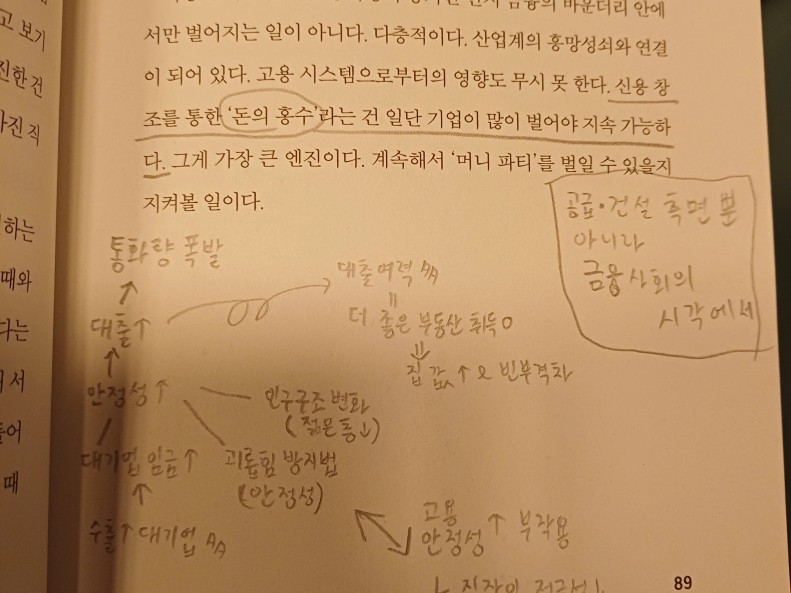 고 보기
진한 건
가진 직
하는
때와
다는
서
들어
때
서만 벌어지는 일이 아니다. 다층적이다. 산업계의 흥망성쇠와 연결
이 되어 있다. 고용 시스템으로부터의 영향도 무시 못 한다. 신용 창
조를 통한 ‘돈의 홍수’라는 건 일단 기업이 많이 벌어야 지속 가능하
다. 그게 가장 큰 엔진이다. 계속해서 ‘머니 파티’를 벌일 수 있을지
지켜볼 일이다.
공급·건설 측면 뿐
아니라
금융 사회의
시각에서
통화량 폭발
↑
대출↑
↑
안정성↑
대기업 임금↑
↑
수출↑ 대기업
대출여력
=
더 좋은 부동산 취득
⇓
집 값↑ & 빈부격차
인구구조 변화
(젊은 층↓)
괴롭힘 방지법
(안정성)
고용
안정성↑ 부작용
89